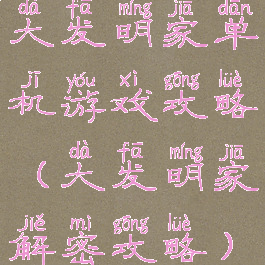 dà fā míng jiā dān
大发明家单
jī yóu xì gōng lüè
机游戏攻略
dà fā míng jiā
（大发明家
jiě mì gōng lüè
解密攻略）